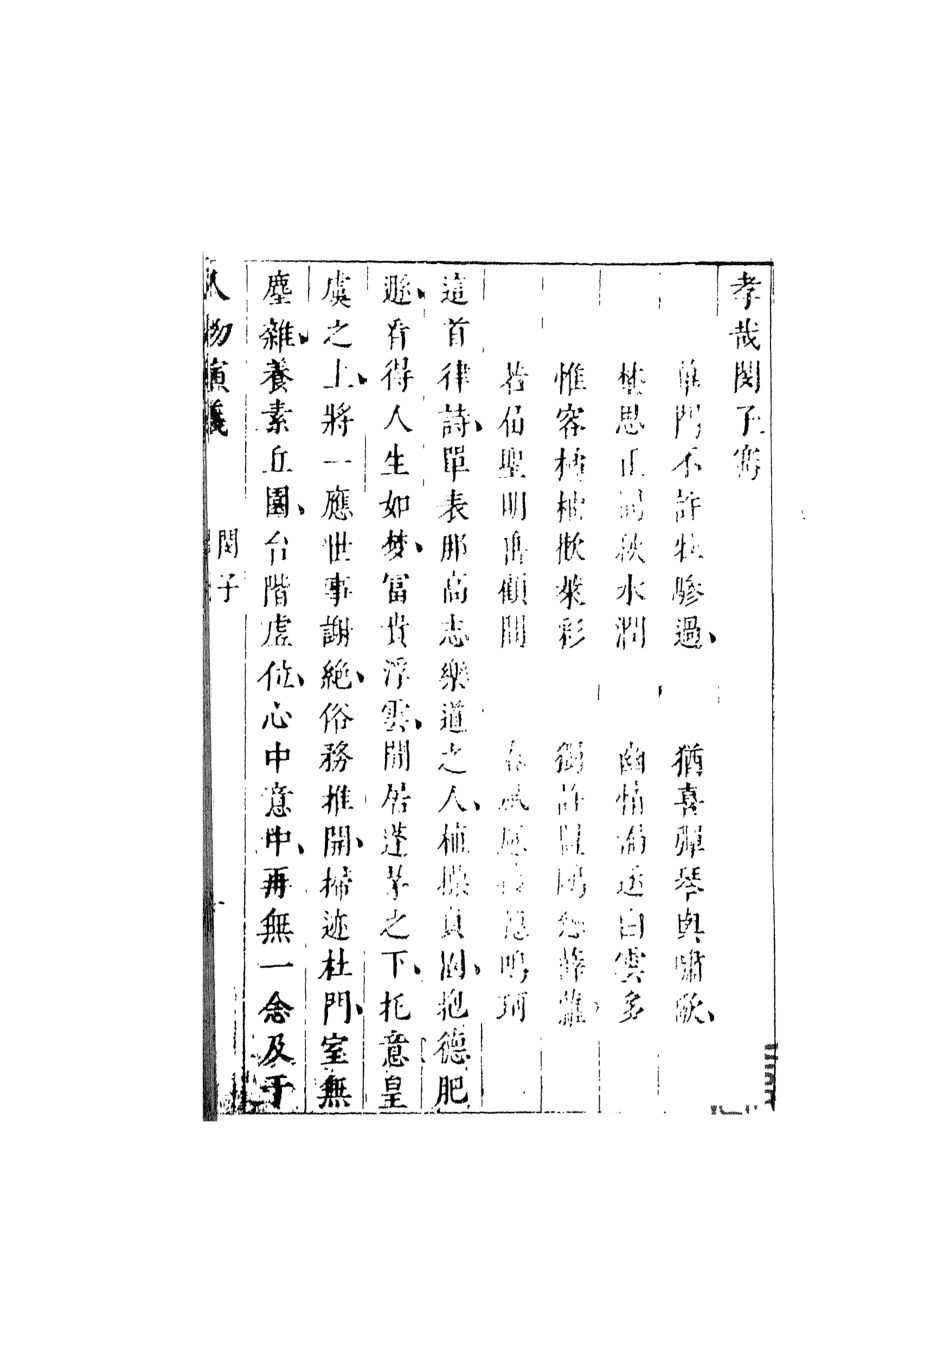 孝哉閔子騫
蓽門不許牡驂過、　猶喜彈琴與嘯歌、
愁思正同秋水濶　幽情滿逐白雲多
惟容橘柚掀萊彩　獨許鵷鴻慰薜蘿、
若侶聖明舊顧問　春風鳴珂
這首律詩、單表那高志樂道之人、植操貞固、抱德肥
遯、看得人生如梦、富貴浮雲、閒居蓬茅之下、托意皇
虞之上、將一應世事謝絕、俗務推開、掃迹杜門、室無
塵雜、養素丘園、台階虛位、心中意中、再無一念及于
人物演義　閔子